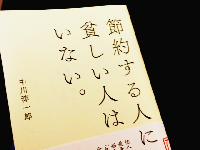 節約する人に
貧しい人は
いない。
中川淳一郎